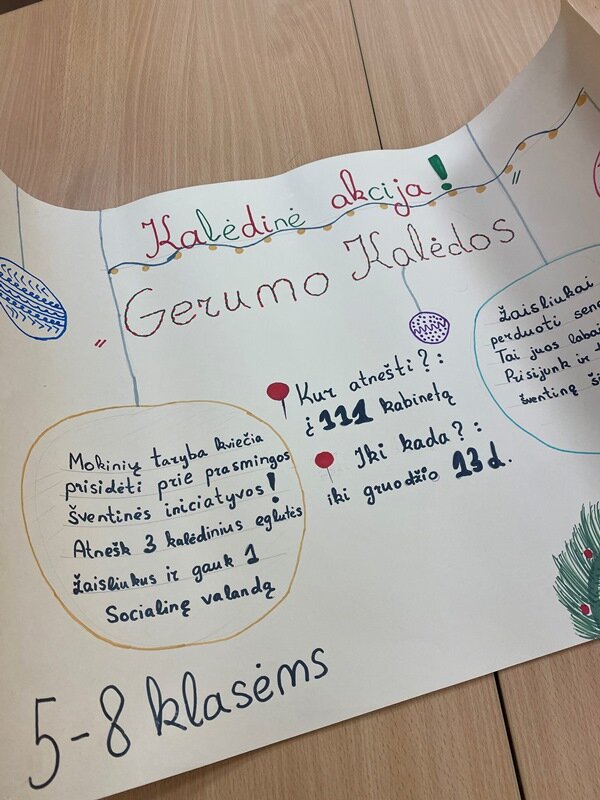 Kalėdinė akcija!
Gerumo Kalėdos
Mokinių taryba kviečia
prisidėti prie prasmingos
šventinės iniciatyvos!
Atnešk 3 kalėdinius eglutės
žaisliukus ir gauk 1
Socialinę valandą
Kur atnešti?:
į 111 kabinetą
Iki kada?:
iki gruodžio 13 d.
Žaisliukai
perduoti
Tai juos labai
Prisijunk ir
šventinę
5-8 klasėms